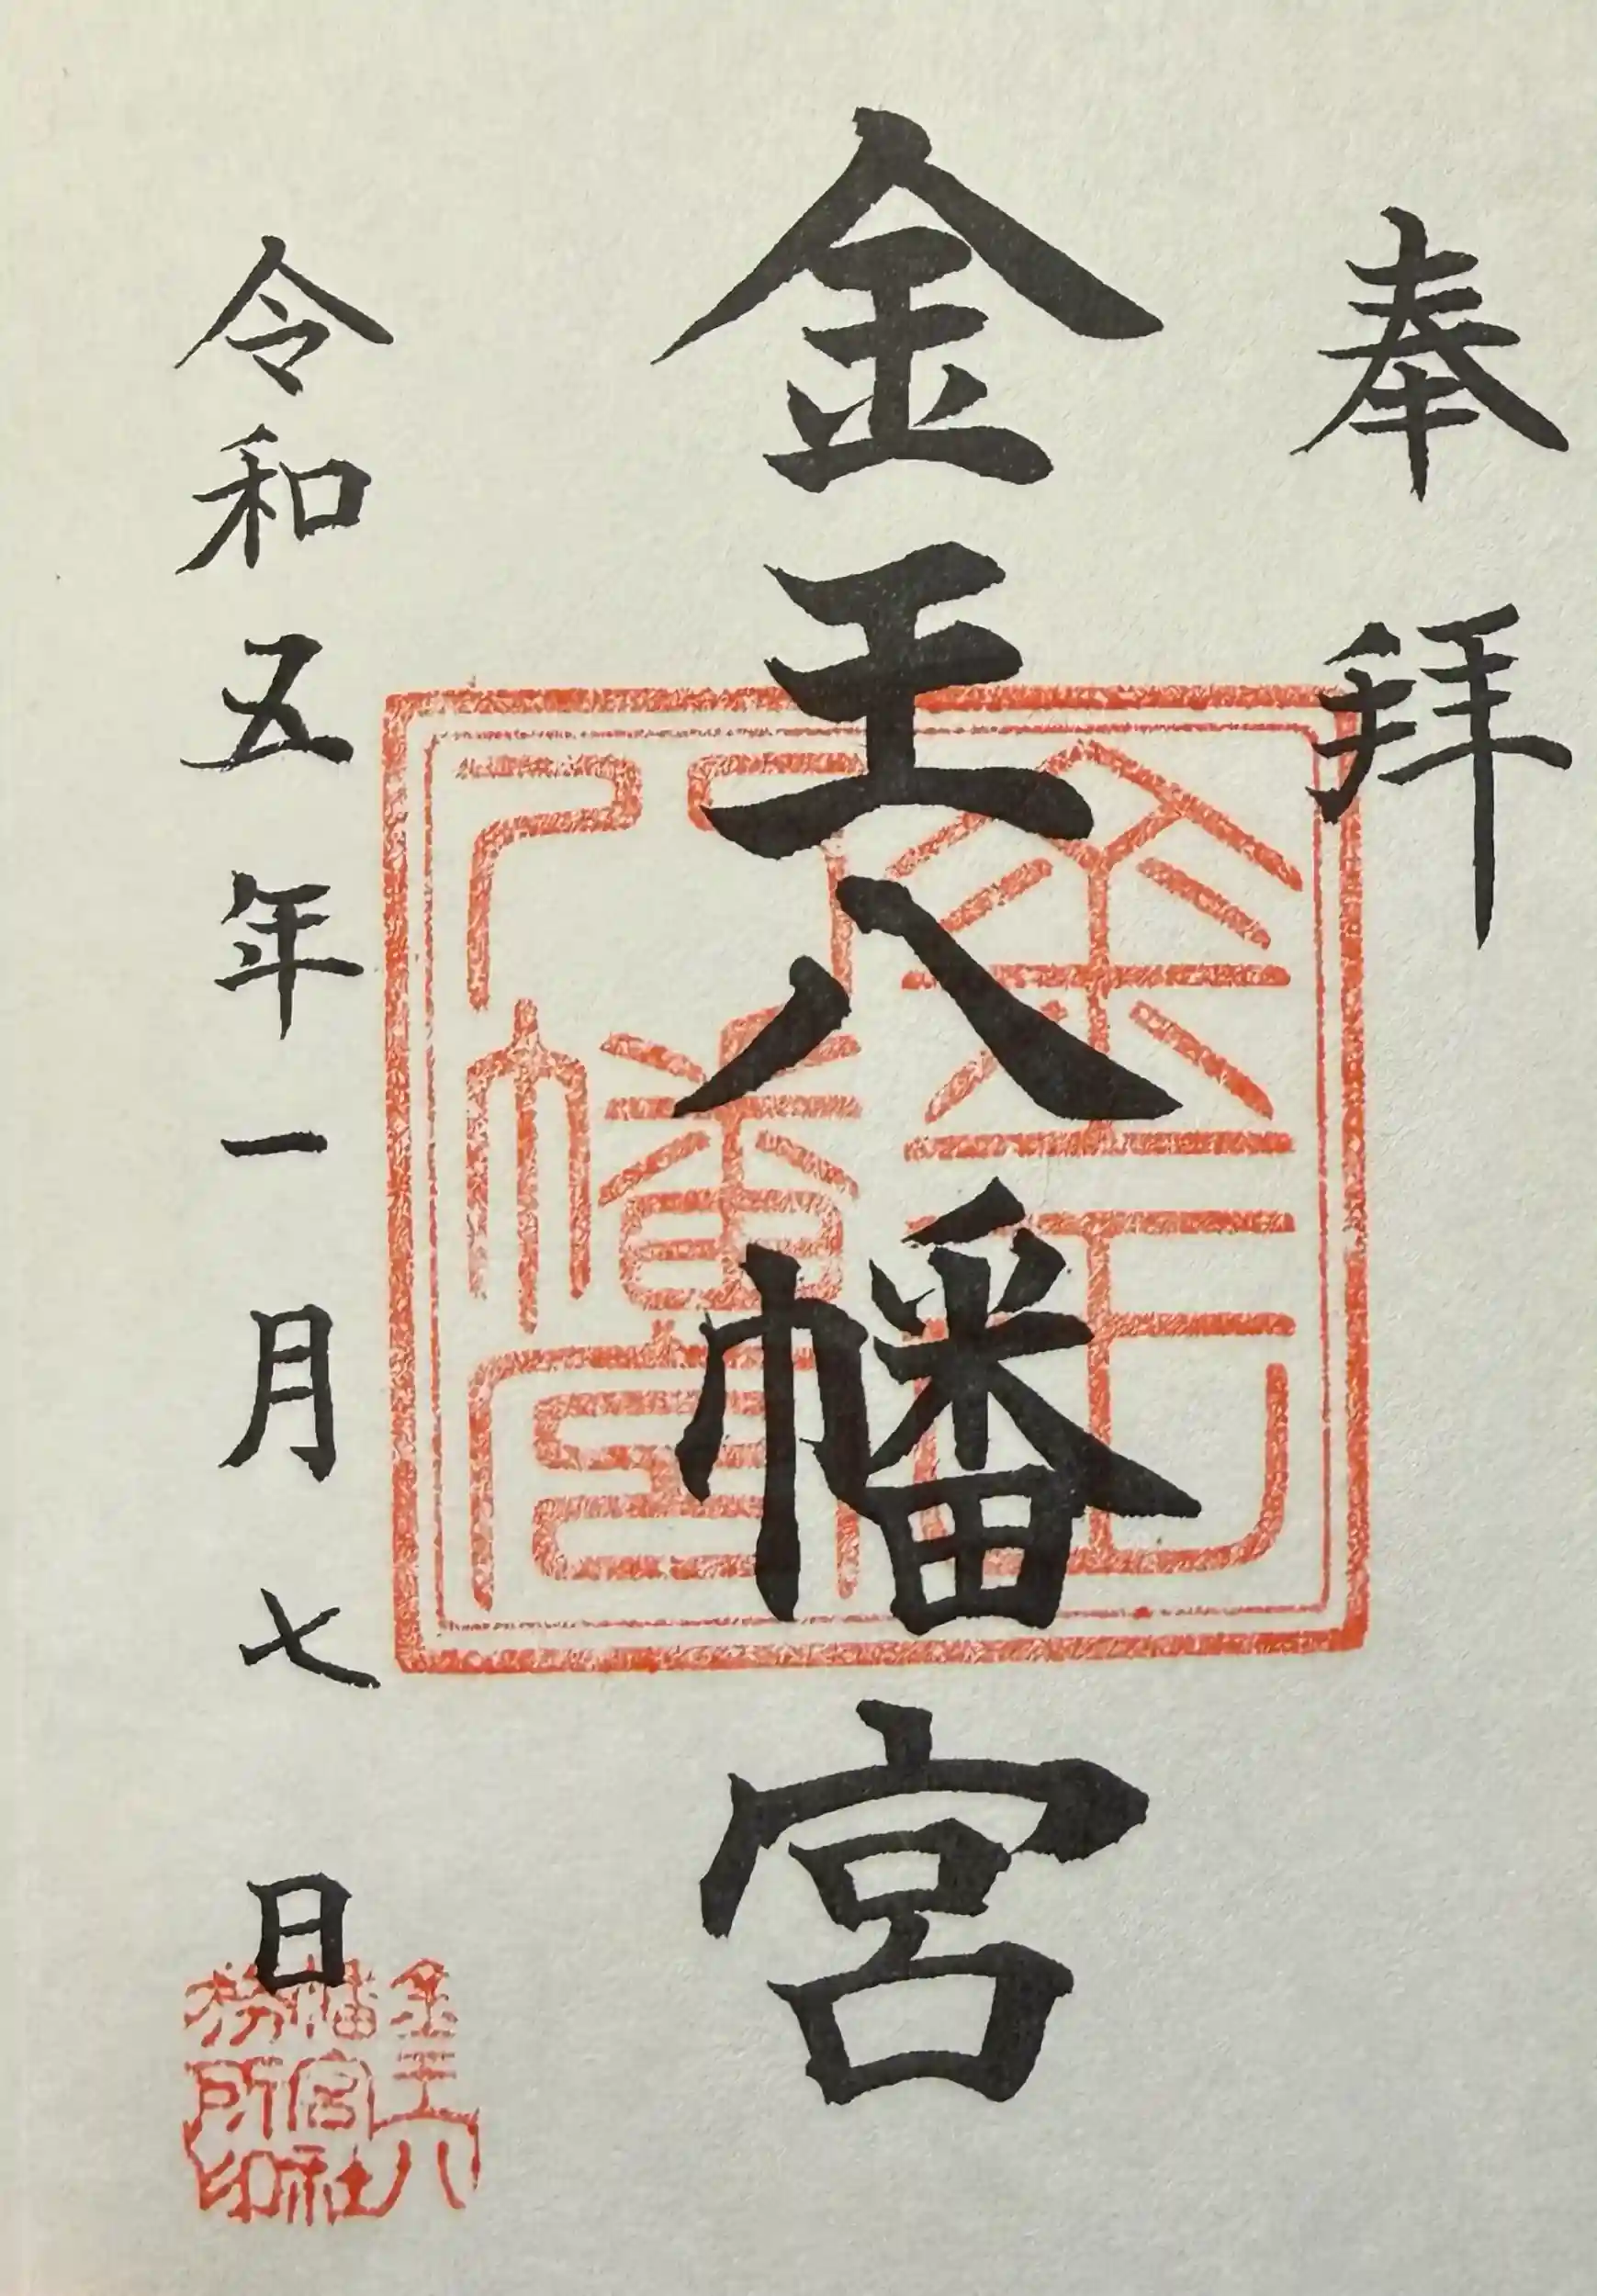 奉拝
金王八幡宮
令和五年一月七日
金王八幡宮
金王八
幡宮社
務所印